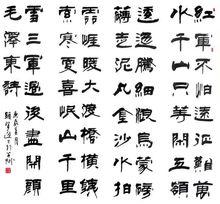 紅軍不怕遠征難萬
水千山只等閒五嶺
逶迤騰細浪烏蒙磅
礴走泥丸金沙水拍
雲崖暖大渡橋橫鐵
索寒更喜岷山千里
雪三軍過後盡開顏
毛澤東詩